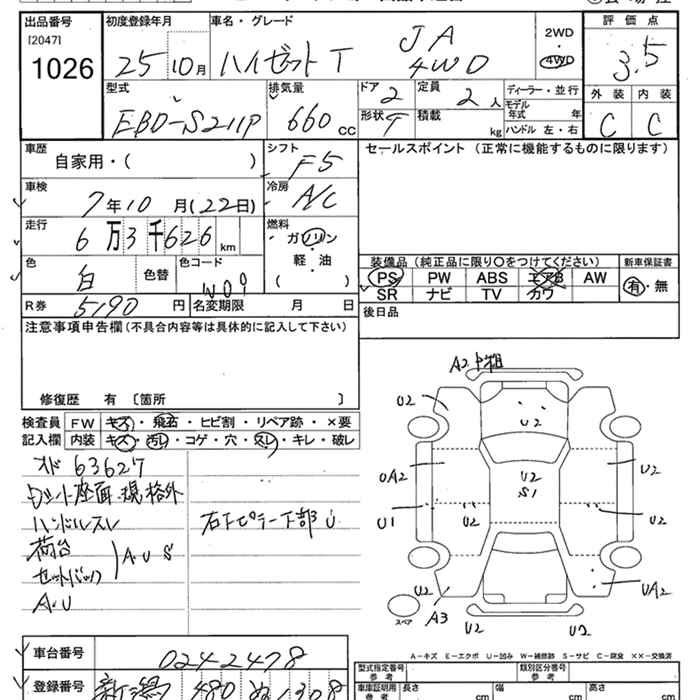 出品番号 初度登録年月 車名・グレード 評価点
[2047]
1026 25 10月 ハイゼット T JA 4WD 2WD ・ 4WD 3.5
型式 排気量 ドア 定員 ディーラー・並行 外装 内装
EBD-S211P 660cc 2 2人 モデル年式 年 C C
形状 T 積載 kg ハンドル 左・右
車歴 シフト セールスポイント (正常に機能するものに限ります)
自家用・( ) F5
車検 冷房
7年10月(22日) A/C
走行 燃料
6万3千626km ガソリン
軽・油
( )
色 色替 色コード
白 W09
装備品(純正品に限り○をつけてください) 新車保証書
PS PW ABS エアB AW 有・無
SR ナビ TV カワ
R券 5190円 名変期限 月 日 後日品
注意事項申告欄(不具合内容等は具体的に記入して下さい)
修復歴 有 〔箇所 〕
検査員 FW キズ・飛石・ヒビ割・リペア跡・×要
記入欄 内装 キズ・汚レ・コゲ・穴・スレ・キレ・破レ
オド 63627
セット座面 規格外
ハンドルスレ
荷台 A・U S
セットバック
A・U
右下ピラー下部 U
A2 中損
U2
U2
UA2
U2
S1
U2
U1
U2
U2
U2
A3
UA2
U2
U2
スペア
A-キズ E-エクボ U-凹み W-補修跡 S-サビ C-腐食 ××-交換済
車台番号 0242478
登録番号 新潟 480 ぬ 1308
型式指定番号 参考 類別区分番号 参考
車庫証明用 参考 長さ cm 幅 cm 高さ cm